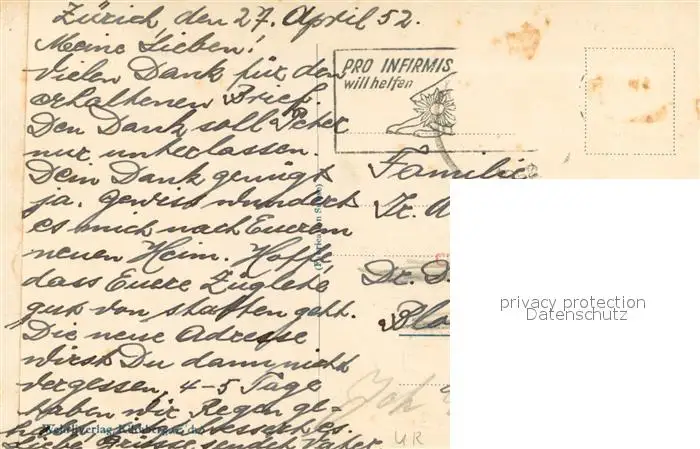 Zürich, den 27. April 52.
Meine Lieben!
Vielen Dank für den
erhaltenen Brief.
Den Dank soll Peter
nur unterlassen.
Dein Dank genügt
ja. Gewiss wundert
es mich nach Eurem
neuen Heim. Hoffe
dass Euere Züglete
gut von statten geht.
Die neue Adresse
wirst Du dann nicht
vergessen. 4-5 Tage
haben wir Regen ge-
besser es.
Liebe Grüsse sendet Vater
PRO INFIRMIS
will helfen
Familie
Dr. D.
privacy protection
Datenschutz
UR